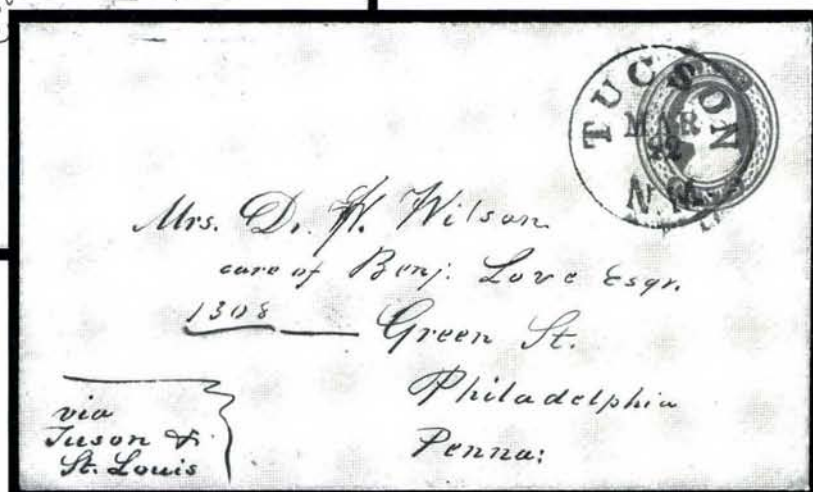 TUCSON
MAR
22
Mrs. D. W. Wilson
care of Benj. Love Esqr.
1308 Green St.
Philadelphia
Penna:
via
Tuson &
St. Louis